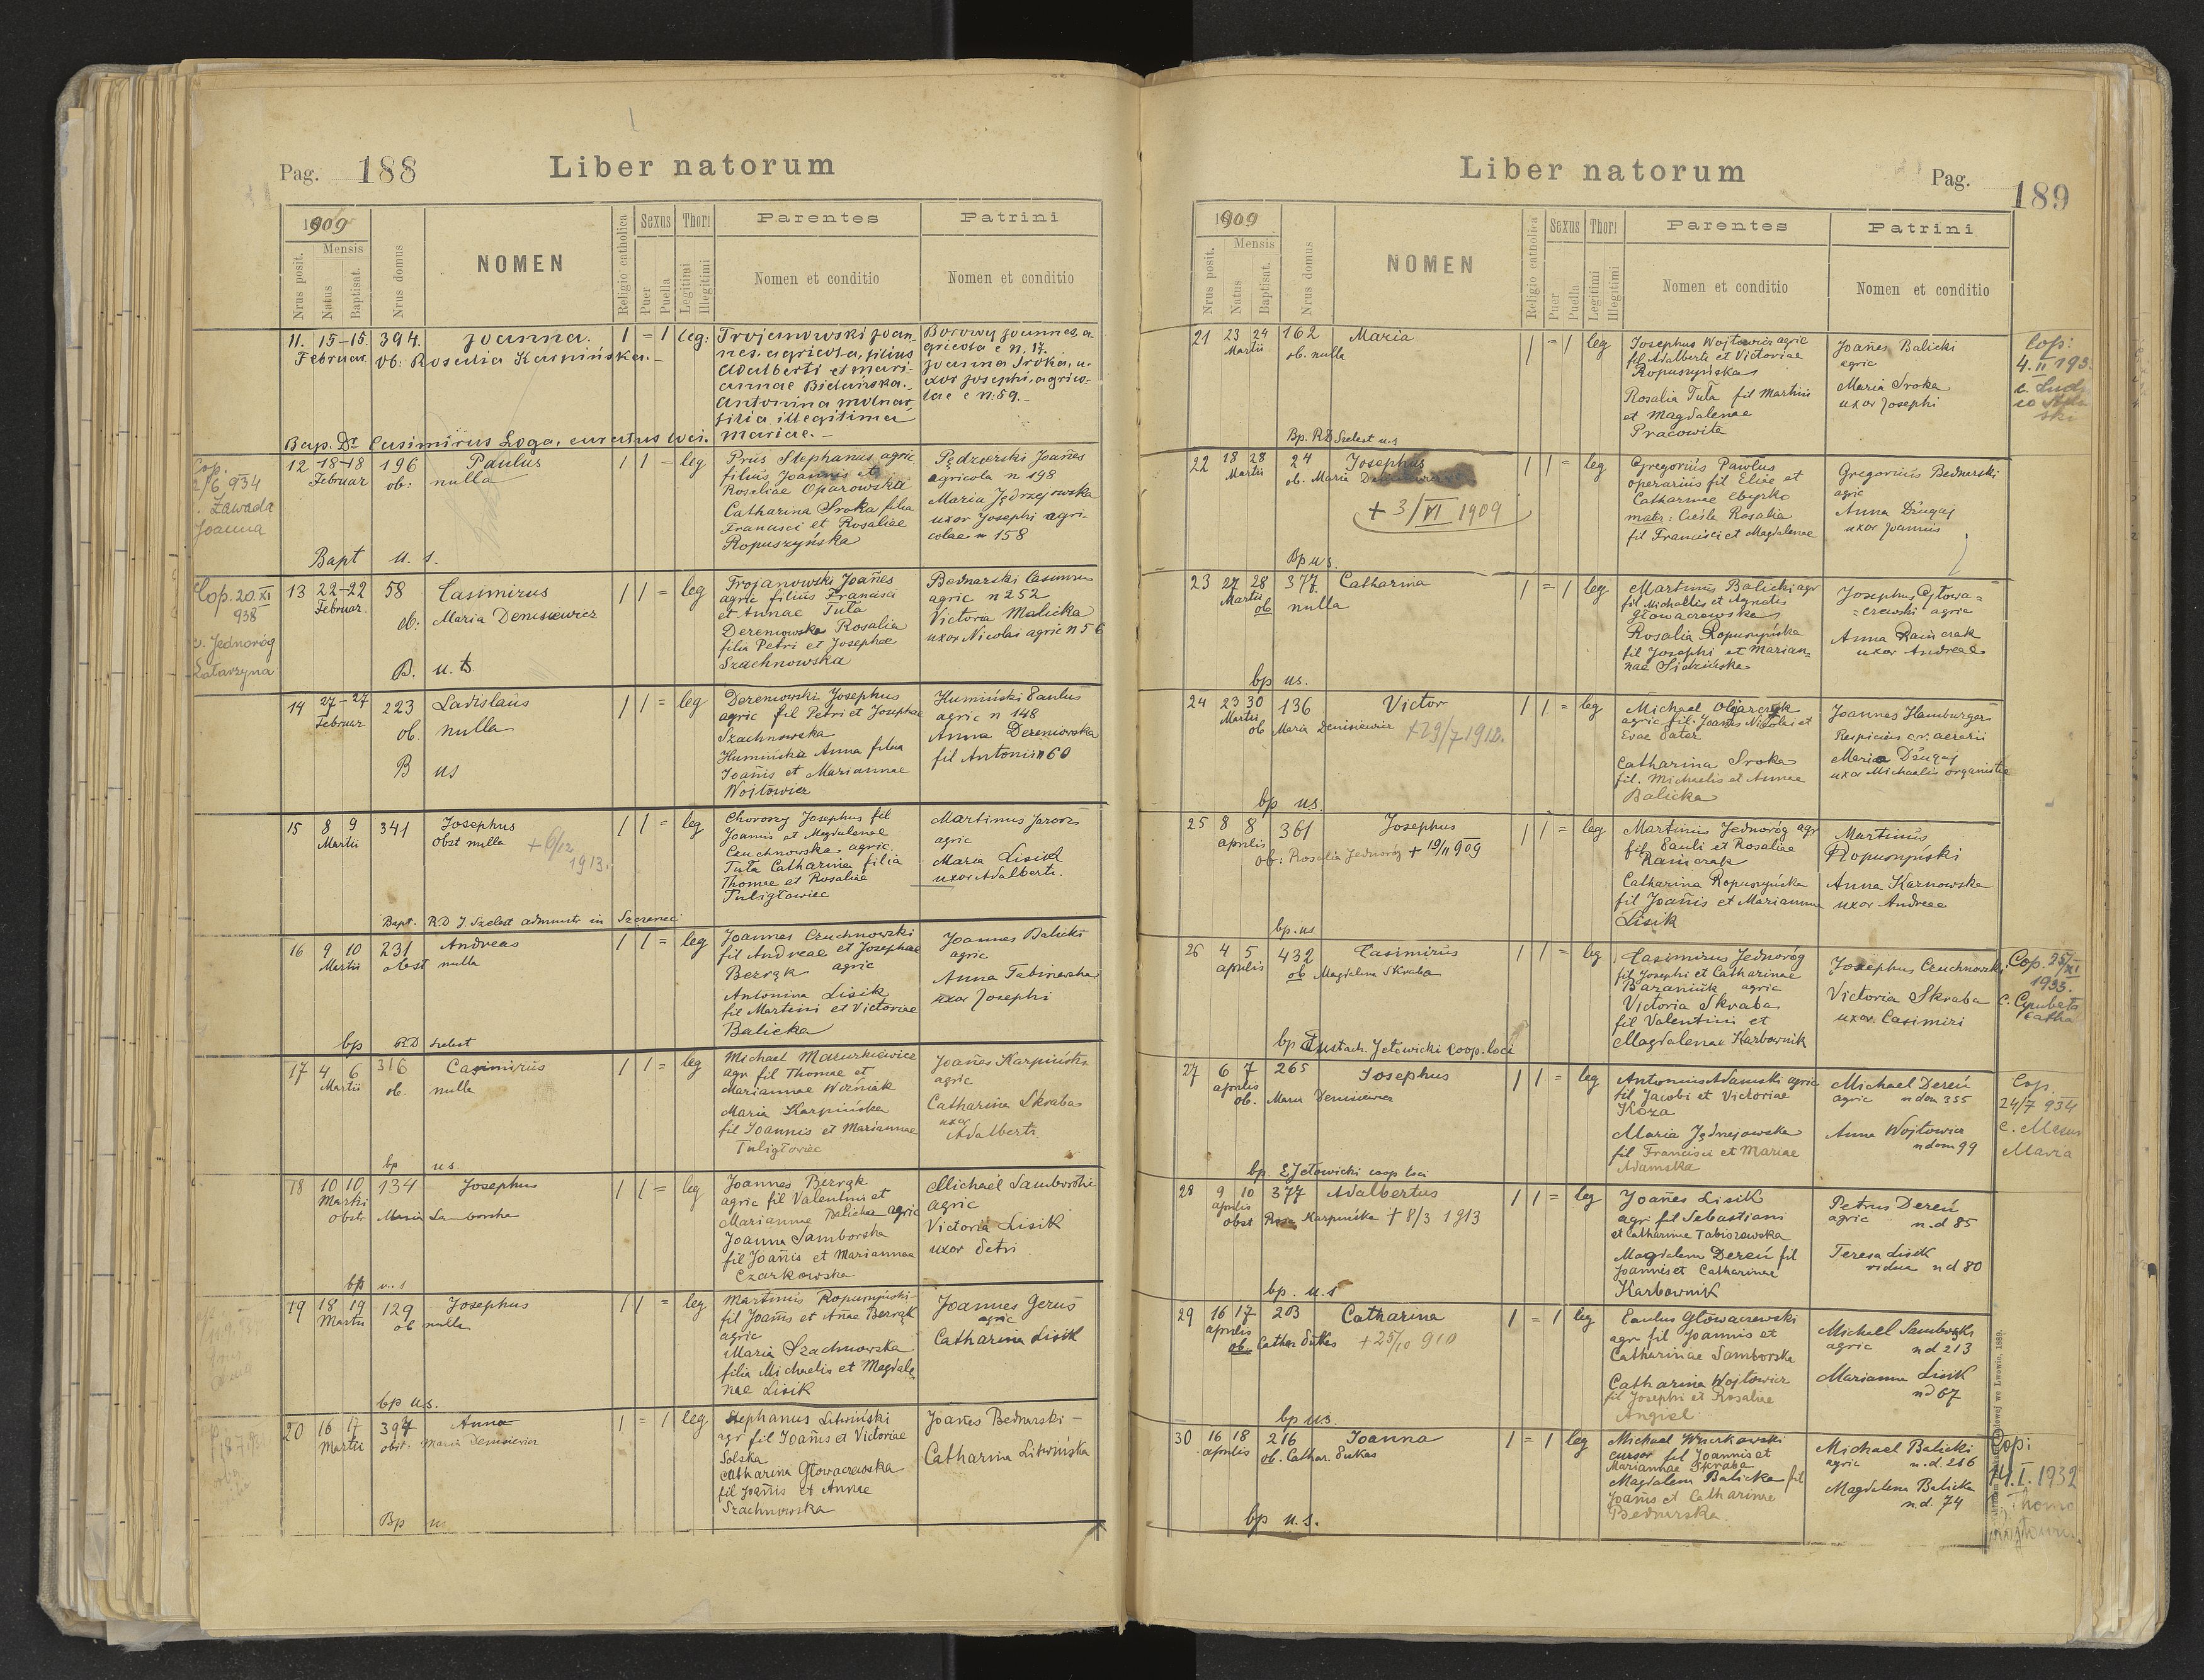 Pag. 188
Liber natorum
1909
Nrus posit.
Mensis
Natus
Baptisat.
Nrus domus
NOMEN
Religio catholica
Sexus
Puer
Puella
Thori
Legitimi
Illegitimi
Parentes
Nomen et conditio
Patrini
Nomen et conditio
11. 15-15. 394. Joanna. 1 = 1 leg:
Februar. ob: Rosalia Karpińska.
Trojanowski Joan-
nes, agricola, filius
Adalberti et Mari-
annae Bielańska.
Antonina Molnar
filia illegitima
Mariae.
Borowy Joannes, a-
gricola e n. 17.
Joanna Sroka, u-
xor Josephi, agrico-
lae e n. 59.
Bap. Dr Casimirus Łoga, curatus loci.
Cop.
2/6 934
Zawada
Joanna
12 18-18 196 Paulus 1 1 - leg
Februar ob: nulla
Prus Stephanus agric.
filius Joannis et
Rosaliae Oparowska
Catharina Sroka filia
Francisci et Rosaliae
Ropuszyńska
Joañes
agricola n 198
Maria Jędrzejowska
uxor Josephi agri-
colae n 158
Bapt u. s.
Cop. 20.XI
938
c. Jednoróg
Katarzyna
13 22-22 58 Casimirus 1 1 = leg
Februar. ob: Maria Denisiewicz
Trojanowski Joañes
agric filius Francisci
et Annae Tuta
Dereniowska Rosalia
filia Petri et Josephae
Szachnowska
Bednarski Casimirus
agric n 252
Victoria Malicka
uxor Nicolai agric n 56
B. u. s.
14 27-27 223 Ladislaus 1 1 = leg
Februar ob. nulla
Dereniowski Josephus
agric fil Petri et Josephae
Szachnowska
Humińska Anna filia
Joañis et Mariannae
Wojtowicz
Humiński Paulus
agric n 148
Anna Dereniowska
fil Antoni n 60
B us
15 8 9 341 Josephus 1 1 = leg
Martii Obst nulla + 6/12 1913.
Choroszy Josephus fil
Joannis et Magdalenae
Czuchnowska agric.
Tuta Catharina filia
Thomae et Rosaliae
Tuligłowiec
Martinus Jarosz
agric
Maria Lisik
uxor Adalberti.
Bapt. RD J. Szelest administr in Szczerzec
16 9 10 231 Andreas 1 1 = leg
Martii obst nulla
Joannes Czuchnowski
fil Andreae et Josephae
Bezrąk agric
Antonina Lisik
fil Martini et Victoriae
Balicka
Joannes Balicki
agric
Anna
uxor Josephi
bp RD Szelest
17 4 6 316 Casimirus 1 1 = leg
Martii ob. nulla
Michael Mazurkiewicz
agr fil Thomae et
Mariannae Woźniak
Maria Karpińska
fil Joannis et Mariannae
Tuligłowiec
Joañes Karpiński
agric
Catharina Skraba
uxor
Adalberti.
bp us.
18 10 10 134 Josephus 1 1 = leg
Martii obstr Maria Samborska
Joannes Bezrąk
agric fil Valentini et
Mariannae Balicka agric
Joanna Samborska
fil Joañis et Mariannae
Czarkowska
Michael Samborski
agric
Victoria Lisik
uxor Petri.
bp u.s
19 18 19 129 Josephus 1 1 = leg
Martii ob nulla
Martinus Ropuszyński
fil Joañis et Añae Bezrąk
agric
Maria Szachnowska
filia Michaelis et Magdale
nae Lisik
Joannes Geruś
agric
Catharina Lisik
bp u.s.
20 16 17 397 Anna 1 = 1 leg
Martii obst. Maria Denisiewicz
Stephanus Litwiński
agr fil Joañis et Victoriae
Solska
Catharina Głowaczewska
fil Joañis et Annae
Szachnowska
Joañes Bednarski -
Catharina Litwińska
Bp us
Liber natorum
Pag. 189
1909
Nrus posit.
Mensis
Natus
Baptisat.
Nrus domus
NOMEN
Religio catholica
Sexus
Puer
Puella
Thori
Legitimi
Illegitimi
Parentes
Nomen et conditio
Patrini
Nomen et conditio
21 23 24 162 Maria 1 = 1 leg
Martii ob. nulla
Josephus Wojtowicz agric
fil Adalberti et Victoriae
Ropuszyńska
Rosalia Tuta fil Martini
et Magdalenae
Pracowita
Joañes Balicki
agric
Maria Sroka
uxor Josephi
Cop:
4. II 193
Bp. RD Szelest u.s
22 18 28 24 Josephus 1 1 = leg
Martii ob. Maria
+ 3/VI 1909
Gregorius Pawlus
operarius fil Eliae et
Catharinae
mater: Cieśla Rosalia
fil Francisci et Magdalenae
Gregorius Bednarski
agric
Anna Długaj
uxor Joannis
Bp u s.
23 27 28 377 Catharina 1 = 1 leg
Martii ob nulla
Martinus Balicki agr
fil Michaelis et Agnetis
Głowaczewska
Rosalia Ropuszyńska
fil Josephi et Marian=
nae Sidzińska
Josephus Głowa=
=czewski agric
Anna Raińczak
uxor Andreae
bp us.
24 23 30 136 Victor 1 1 = leg
Martii ob Maria Denisiewicz +29/7 1912.
Michael Olijarczyk
agric fil. Joañis Nicolai et
Evae Pater
Catharina Sroka
fil. Michaelis et Annae
Balicka
Joannes Hamburger
Respicius c.r. aerarii
Maria Długaj
uxor Michaelis organistae
bp us.
25 8 8 361 Josephus 1 1 = leg
aprilis ob: Rosalia Jednoróg + 19/11 909
Martinus Jednoróg agr
fil Pauli et Rosaliae
Raińczak
Catharina Ropuszyńska
fil Joañis et Mariannae
Lisik
Martinus
Ropuszyński
Anna Karnowska
uxor Andreae
bp. us
26 4 5 432 Casimirus 1 1 = leg
aprilis ob Magdalena Skraba
Casimirus Jednoróg
fil Josephi et Catharinae
Baraniuk agric
Victoria Skraba
fil Valentini et
Magdalenae Karbownik
Josephus Czuchnowski
Victoria Skraba
uxor Casimiri
Cop. 25/XI
1933.
bp Eustach. Jełowicki coop. loci
27 6 7 265 Josephus 1 1 = leg
aprilis ob. Maria Denisiewicz
Antonius Adamski agric
fil Jacobi et Victoriae
Koza
Maria Jędrzejowska
fil Francisci et Mariae
Adamska
Michael Dereń
agric n dom 355
Anna Wojtowicz
n dom 99
Cop.
24/7 934
c. Mazur
Maria
bp E Jełowicki coop loci
28 9 10 377 Adalbertus 1 1 = leg
aprilis obst Karpińska + 8/3 1913
Joañes Lisik
agr fil Sebastiani
et Catharinae
Magdalena Dereń fil
Joannis et Catharinae
Karbownik
Petrus Dereń
agric n.d 85
Teresa Lisik
vidua n d 80
bp. u.s
29 16 17 203 Catharina 1 = 1 leg
aprilis ob. Cathar Dukas +25/10 910
Paulus Głowaczewski
agr fil Joannis et
Catharinae Samborska
Catharina Wojtowicz
fil Josephi et Rosaliae
Angiel
Michael Samborski
agric n d 213
Marianna Lisik
nd 67
bp us.
30 16 18 216 Joanna 1 = 1 leg
aprilis ob. Cathar. Dukas
Michael
cursor fil Joannis et
Mariannae Skraba
Magdalena Balicka fil
Joañis et Catharinae
Bednarska
Michael Balicki
agric n.d. 216
Magdalena Balicka
n.d. 74
Cop:
14. I. 1932
bp u.s.